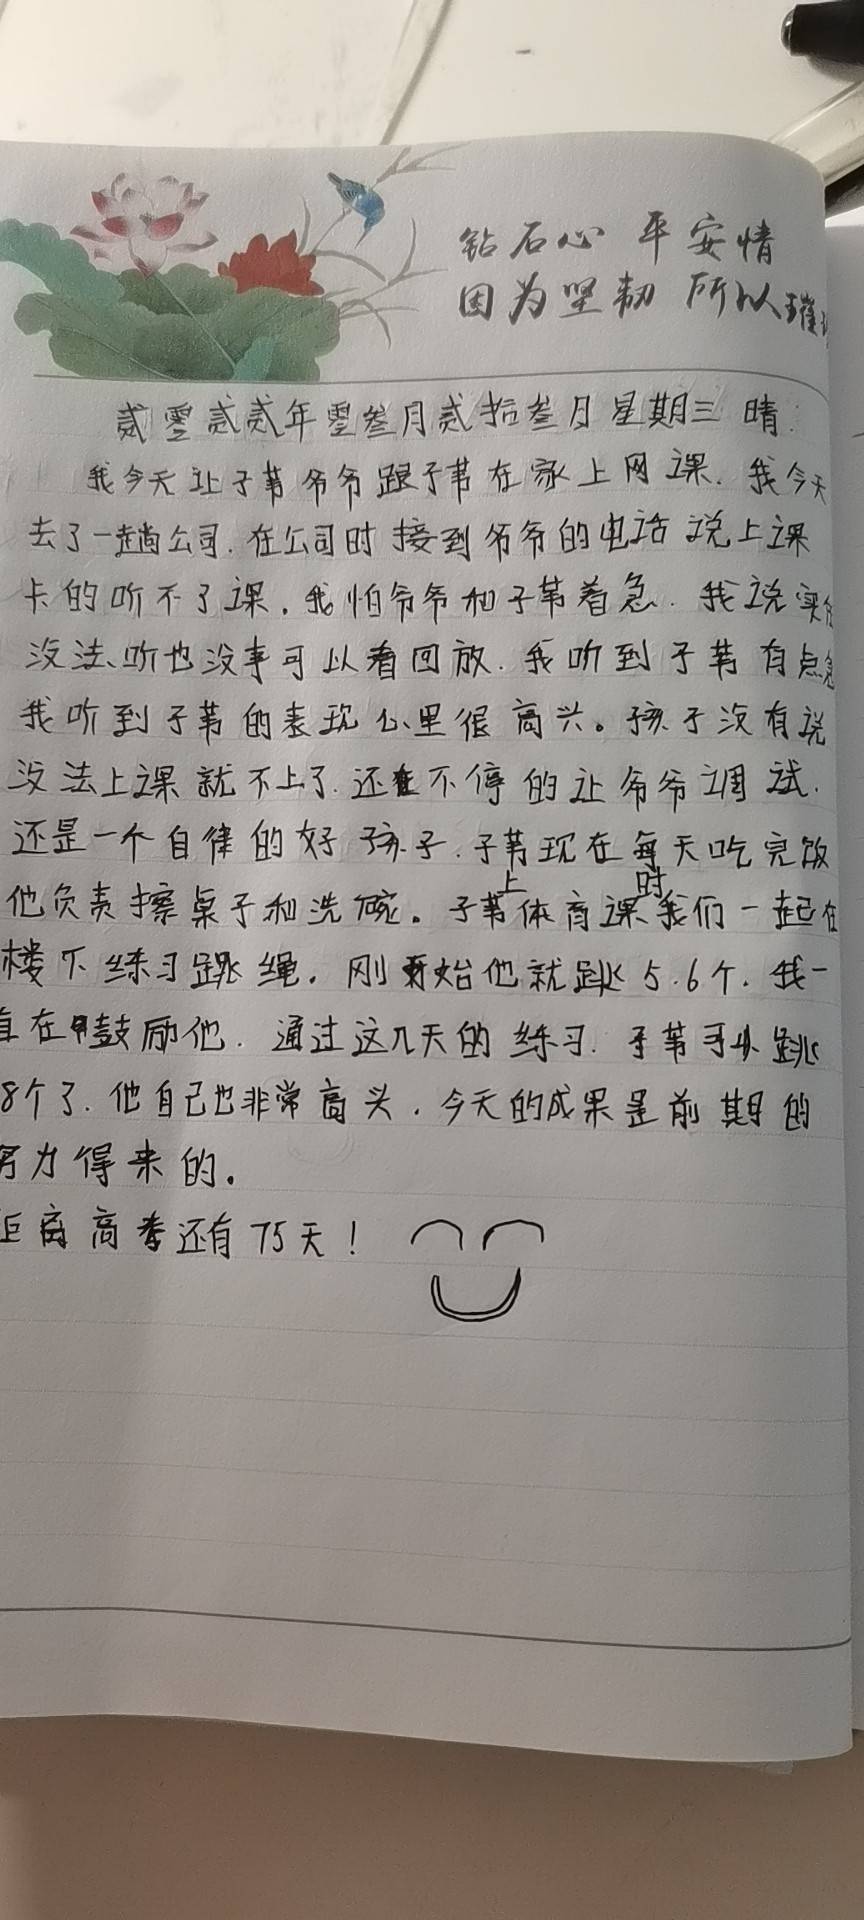 钻石心 平安情
因为坚韧 所以璀
贰零贰贰年零叁月贰拾叁日星期三 晴.
我今天让子苇爷爷跟子苇在家上网课. 我今天
去了一趟公司. 在公司时接到爷爷的电话说上课
卡的听不了课. 我怕爷爷和子苇着急. 我说实在
没法听也没事可以看回放. 我听到子苇有点急
我听到子苇的表现心里很高兴。孩子没有说
没法上课就不上了. 还在不停的让爷爷调试.
还是一个自律的好孩子. 子苇现在每天吃完饭
他负责擦桌子和洗碗。子苇上体育课时我们一起在
楼下练习跳绳. 刚开始他就跳5.6个. 我一
直在鼓励他. 通过这几天的练习. 子苇可以跳
8个了. 他自己也非常高兴. 今天的成果是前期的
努力得来的。
距离高考还有75天!